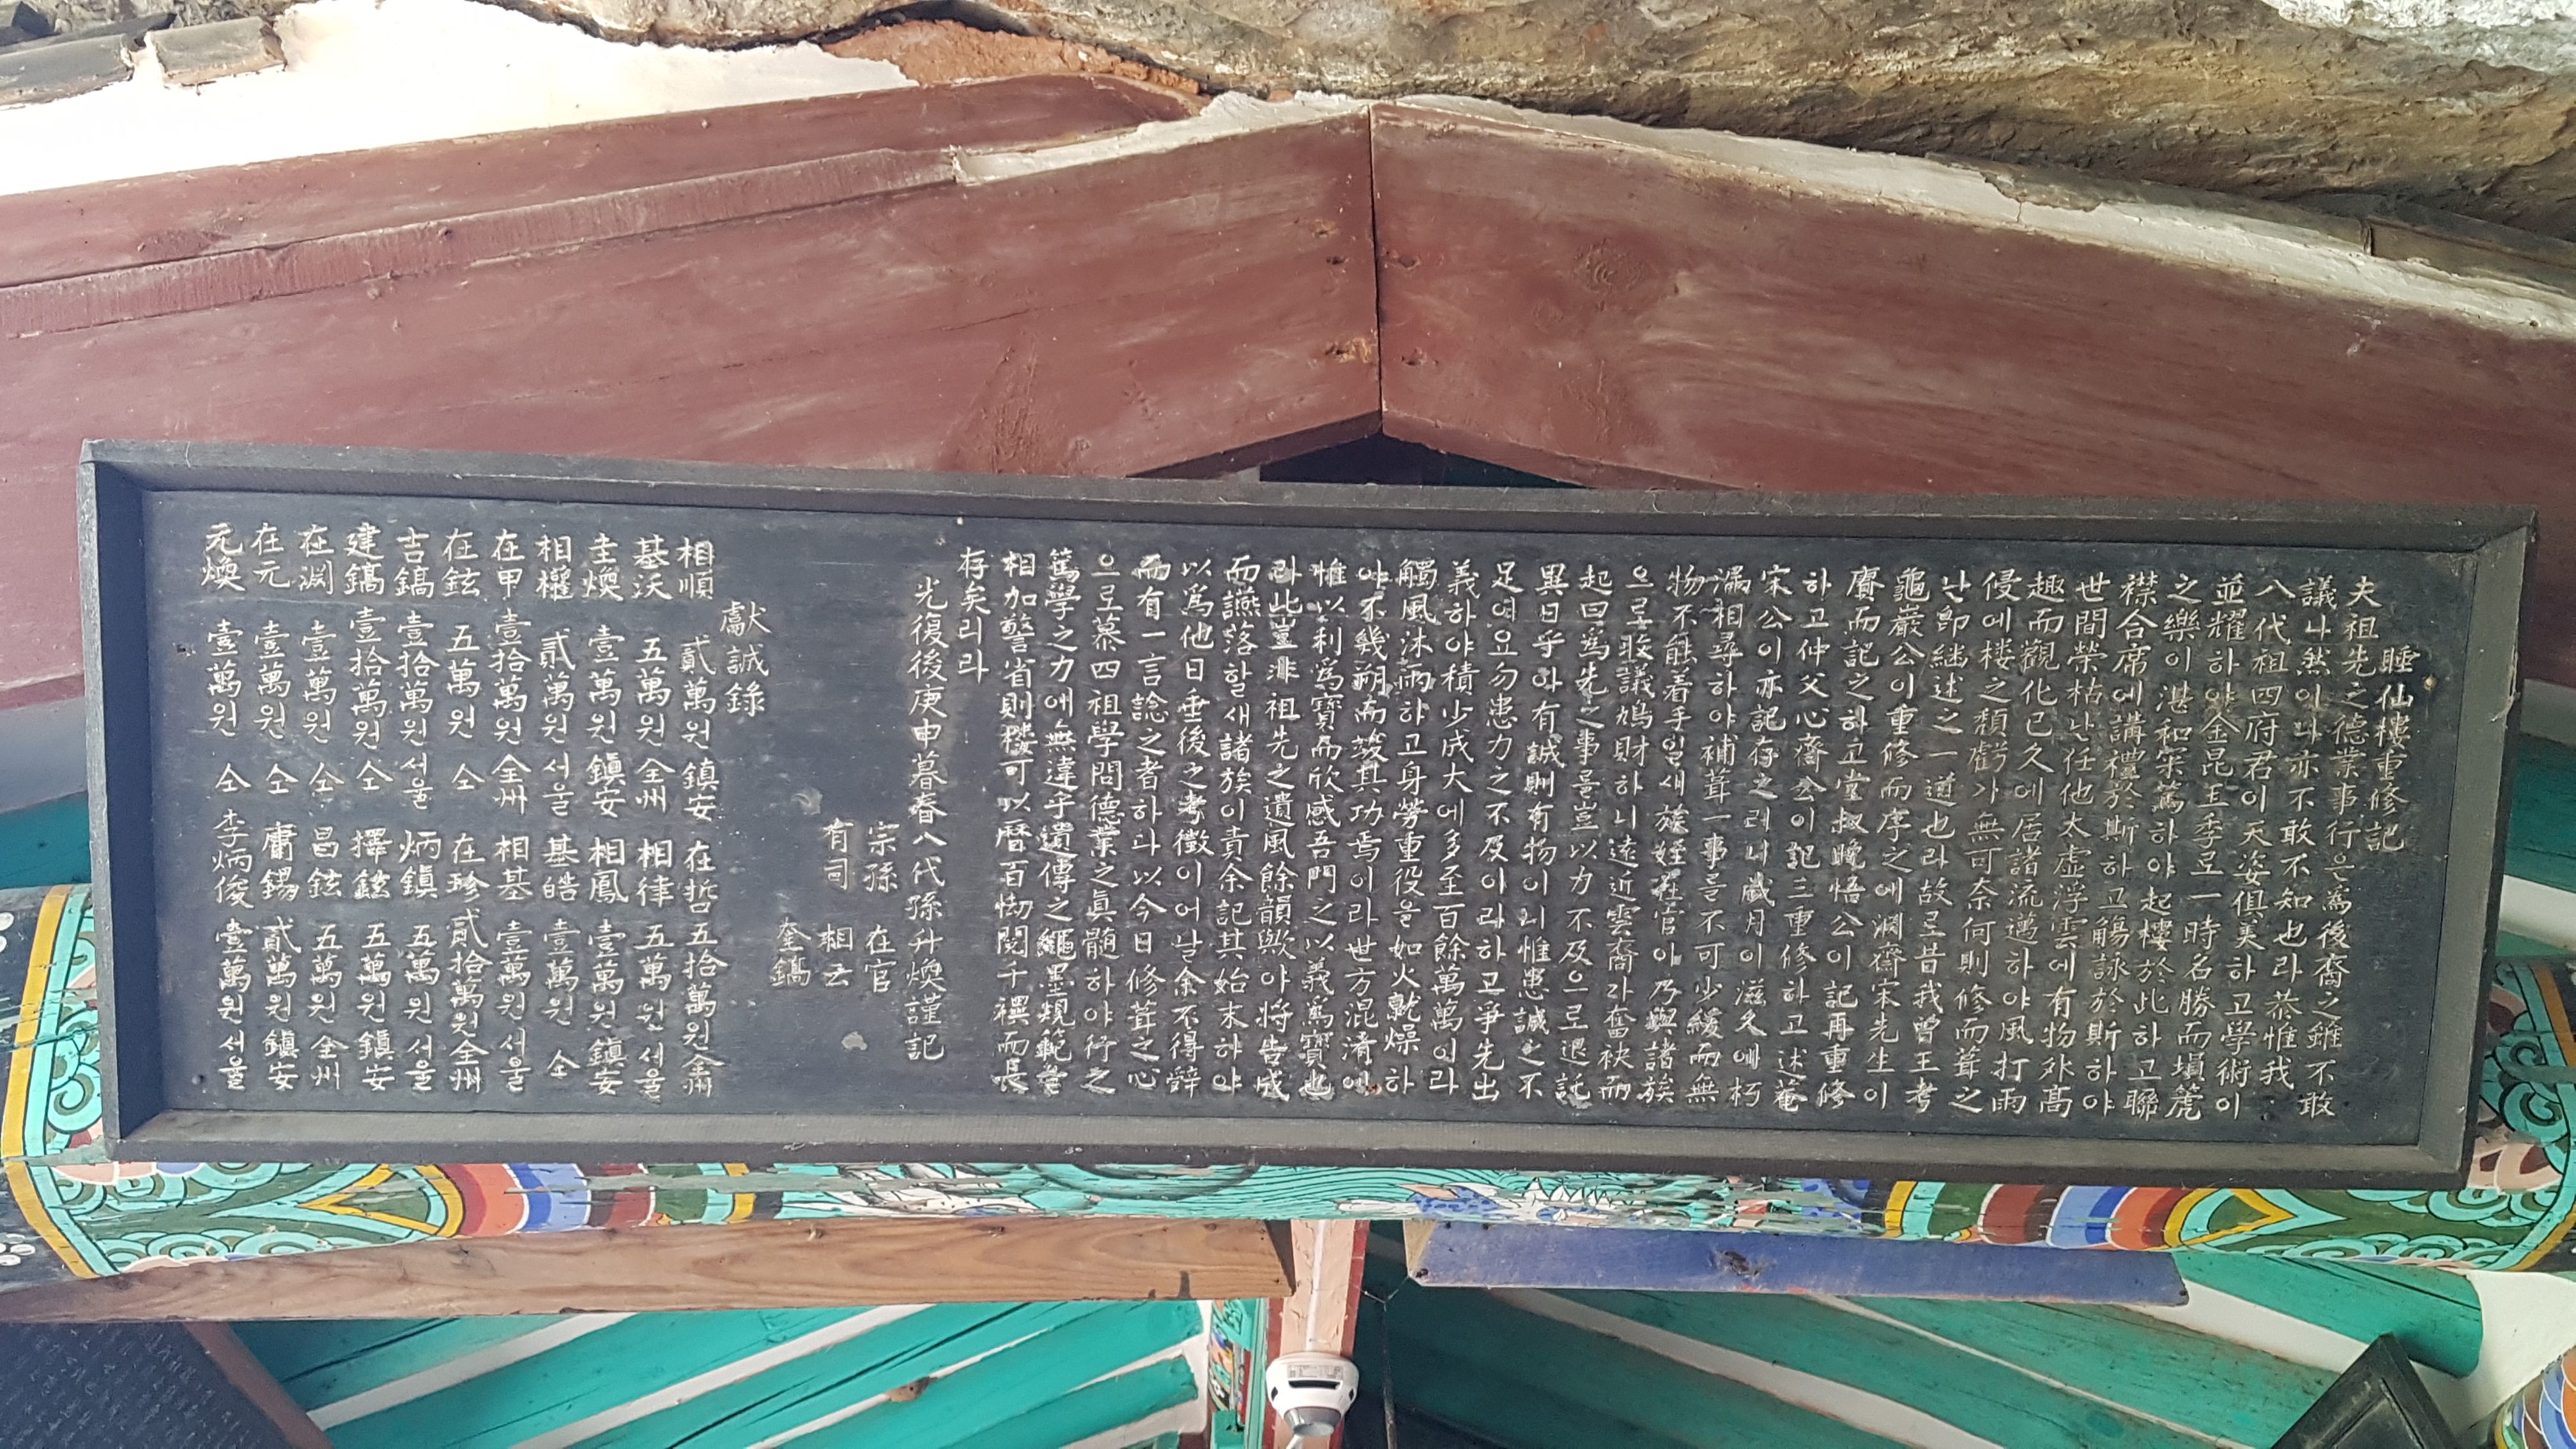 睡仙樓重修記
夫祖先之德業事行은爲後裔之雖不敢
議나然이나亦不敢不知也라恭惟我
八代祖四府君이天姿俱美하고學術이
並耀하야金昆玉季로一時名勝而塤箎
之樂이湛和深篤하야起樓於此하고聯
襟合席에講禮於斯하고觴詠於斯하야
世間榮枯난任他太虛浮雲에有物外高
趣而觀化已久에居諸流邁하야風打雨
侵에楼之頹虧가無可奈何則修而葺之
난卽繼述之一道也라故로昔我曾王考
龜巖公이重修而序之에淵齋宋先生이
賡而記之하고堂叔晩悟公이記再重修
하고仲父心齋公이記三重修하고述菴
宋公이亦記存之러니歲月이滋久에朽
漏相尋하야補葺一事를不可少緩而無
物不能着手일새族姪在官이乃與諸族
으로收議鳩財하니遠近雲裔라奮袂而
起曰爲先之事를豈以力不及으로退託
異日乎아有誠則有物이니惟患誠之不
足여요勿患力之不及이라하고爭先出
義하야積少成大에多至百餘萬萬이라
觸風沐雨하고身勞重役을如火就燥하
야不幾朔而竣其功焉이라世方混淆에
惟以利爲寶而欣感吾門之以義爲寶也
라此豈非祖先之遺風餘韻歟아將告成
而讌落할새諸族이責余記其始末하야
以爲他日垂後之考徵이어날余不得辭
而有一言諗之者하니以今日修葺之心
으로慕四祖學問德業之眞髓하야行之
篤學之力에無違乎遺傳之繩墨規範
相加警省則樓可以曆百刧閱千禩而長
存矣리라
光復後庚申暮春八代孫升煥謹記
宗孫 在官
有司 相云
奎鎬
獻誠錄
相順 貳萬원 鎭安 在哲 五拾萬원 全州
基沃 五萬원 全州 相律 五萬원 서울
圭煥 壹萬원 鎭安 相鳳 壹萬원 鎭安
相權 貳萬원 서울 基皓 壹萬원 仝
在甲 壹拾萬원 全州 相基 壹萬원 서울
在鉉 五萬원 仝 在珍 貳拾萬원 全州
吉鎬 壹拾萬원 서울 炳鎭 五萬원 서울
建鎬 壹拾萬원 仝 擇鉉 五萬원 鎭安
在淵 壹萬원 仝 昌鉉 五萬원 全州
在元 壹萬원 仝 庸錫 貳萬원 鎭安
元煥 壹萬원 仝 李炳俊 壹萬원 서울